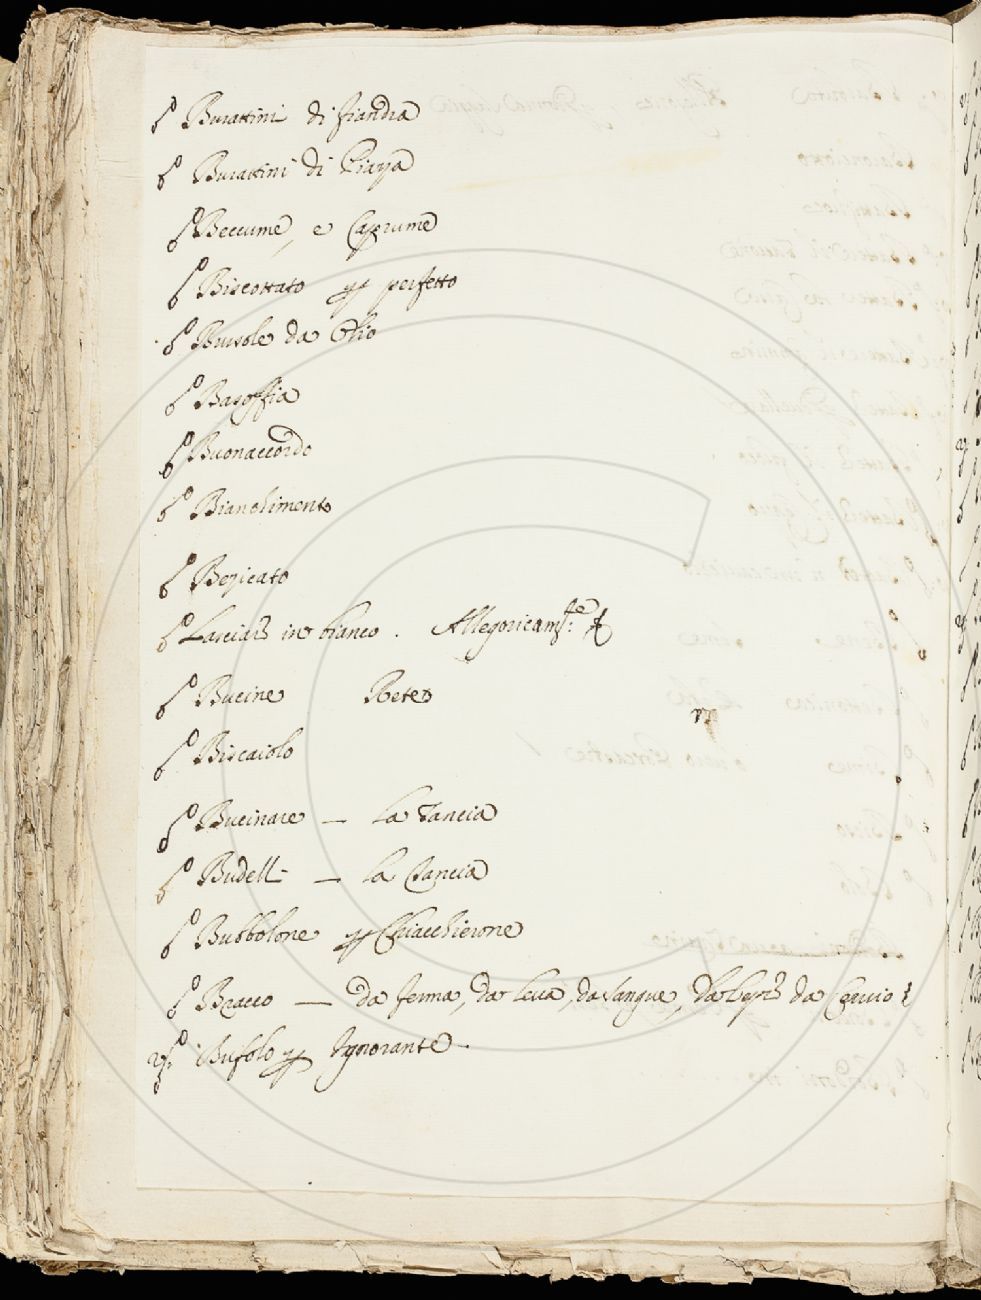 Burattini di fiandra
Burattini di Piaza
Beccume, e Caprume
Biscottato p perfetto
Bussole da Olio
Basoffia
Buonaccordo
Bianchimento
Bericato
Lasciare in bianco. Allegoricamte:
Bucine Rete
Biscaiolo
Bucinare — la Tancia
Budell- — la Tancia
Bubbolone p Chiacchierone
Bracco — da ferma, da leva, da sangue, da da Cervio
Bufolo p Ignorante